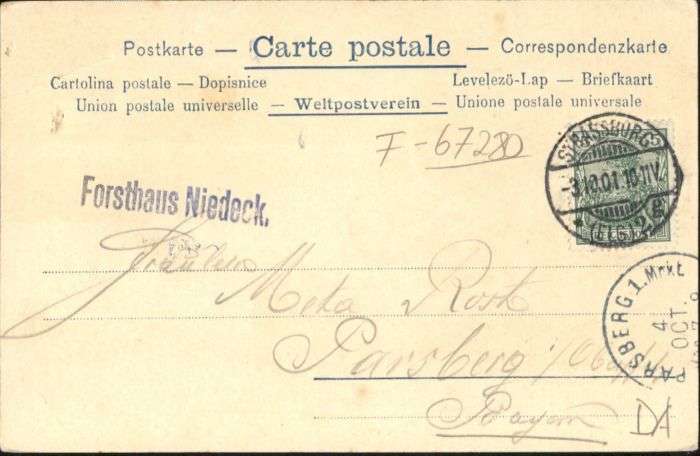 Postkarte — Carte postale — Correspondenzkarte
Cartolina postale — Dopisnice Levelező-Lap — Briefkaart
Union postale universelle — Weltpostverein — Unione postale universale
F-67280
STRASSBURG
-3.10.01.10-11V.
* (ELS) 2 g
Forsthaus Niedeck.
Fräulein
Meta Rost
PARSBERG. 1. Mrkt
4
OCT.
Parsberg
Bayern
DA